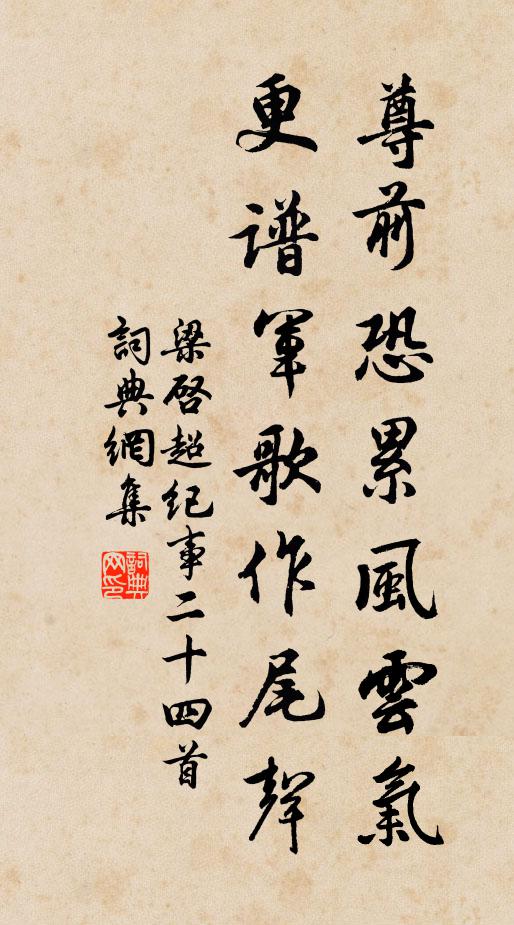 尊前恐累風雲氣
更譜軍歌作尾聲
梁啓超紀事二十四首
詞典網集
詞典网印